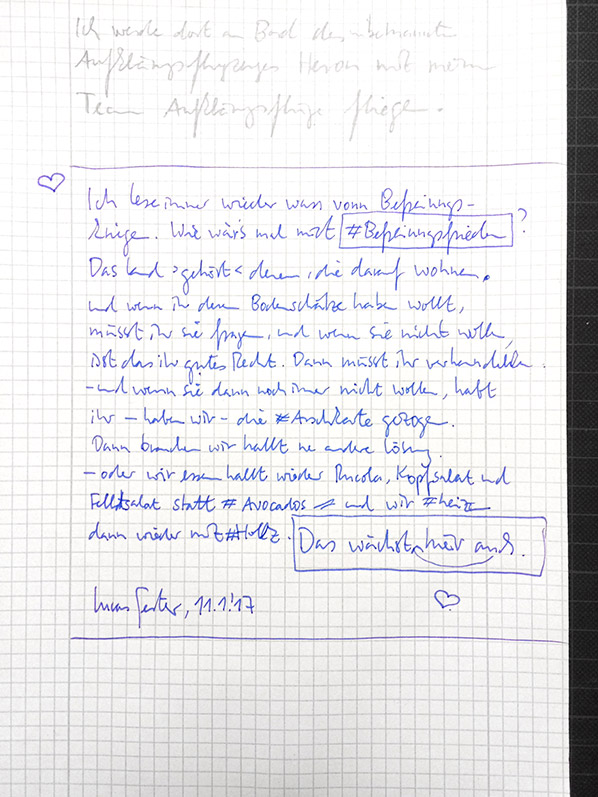 Ich werde dort an Bord des unbemannten
Aufklärungsflugzeuges Heron mit meinem
Team Aufklärungsflüge fliegen.
Ich lese immer wieder was vonn Befreiungs-
kriege. Wie wär's mal mit #Befreiungsfrieden?
Das Land >gehört< denen, die darauf wohnen.
und wenn ihr deren Bodenschätze haben wollt,
müsst ihr sie fragen, und wenn sie nicht wollen,
ist das ihr gutes Recht. Dann müsst ihr verhandelln.
- und wenn sie dann noch immer nicht wollen, habt
ihr - haben wir - die #Arschkarte gezogen.
Dann brauchen wir hallt ne andere Lösung.
- oder wir essen hallt wieder Rucola, Kopfsalat und
Feldsalat statt #Avocados - und wir #heizen
dann wieder mit #Holz. Das wächst hier auch.
11.1.'17